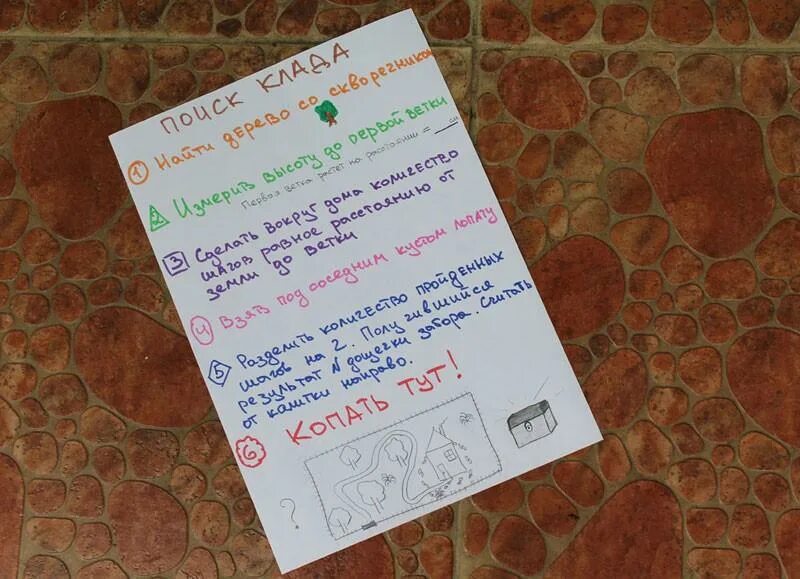 ПОИСК КЛАДА
1 Найти дерево со скворечником
2 Измерить высоту до первой ветки
Первая ветка растет на расстоянии = ___ см
3 Сделать вокруг дома количество
шагов равное расстоянию от
земли до ветки
4 Взять под соседним кустом лопату
5 Разделить количество пройденных
шагов на 2. Получившийся
результат N дощечки забора. Считать
от калитки направо.
6 КОПАТЬ ТУТ!
?